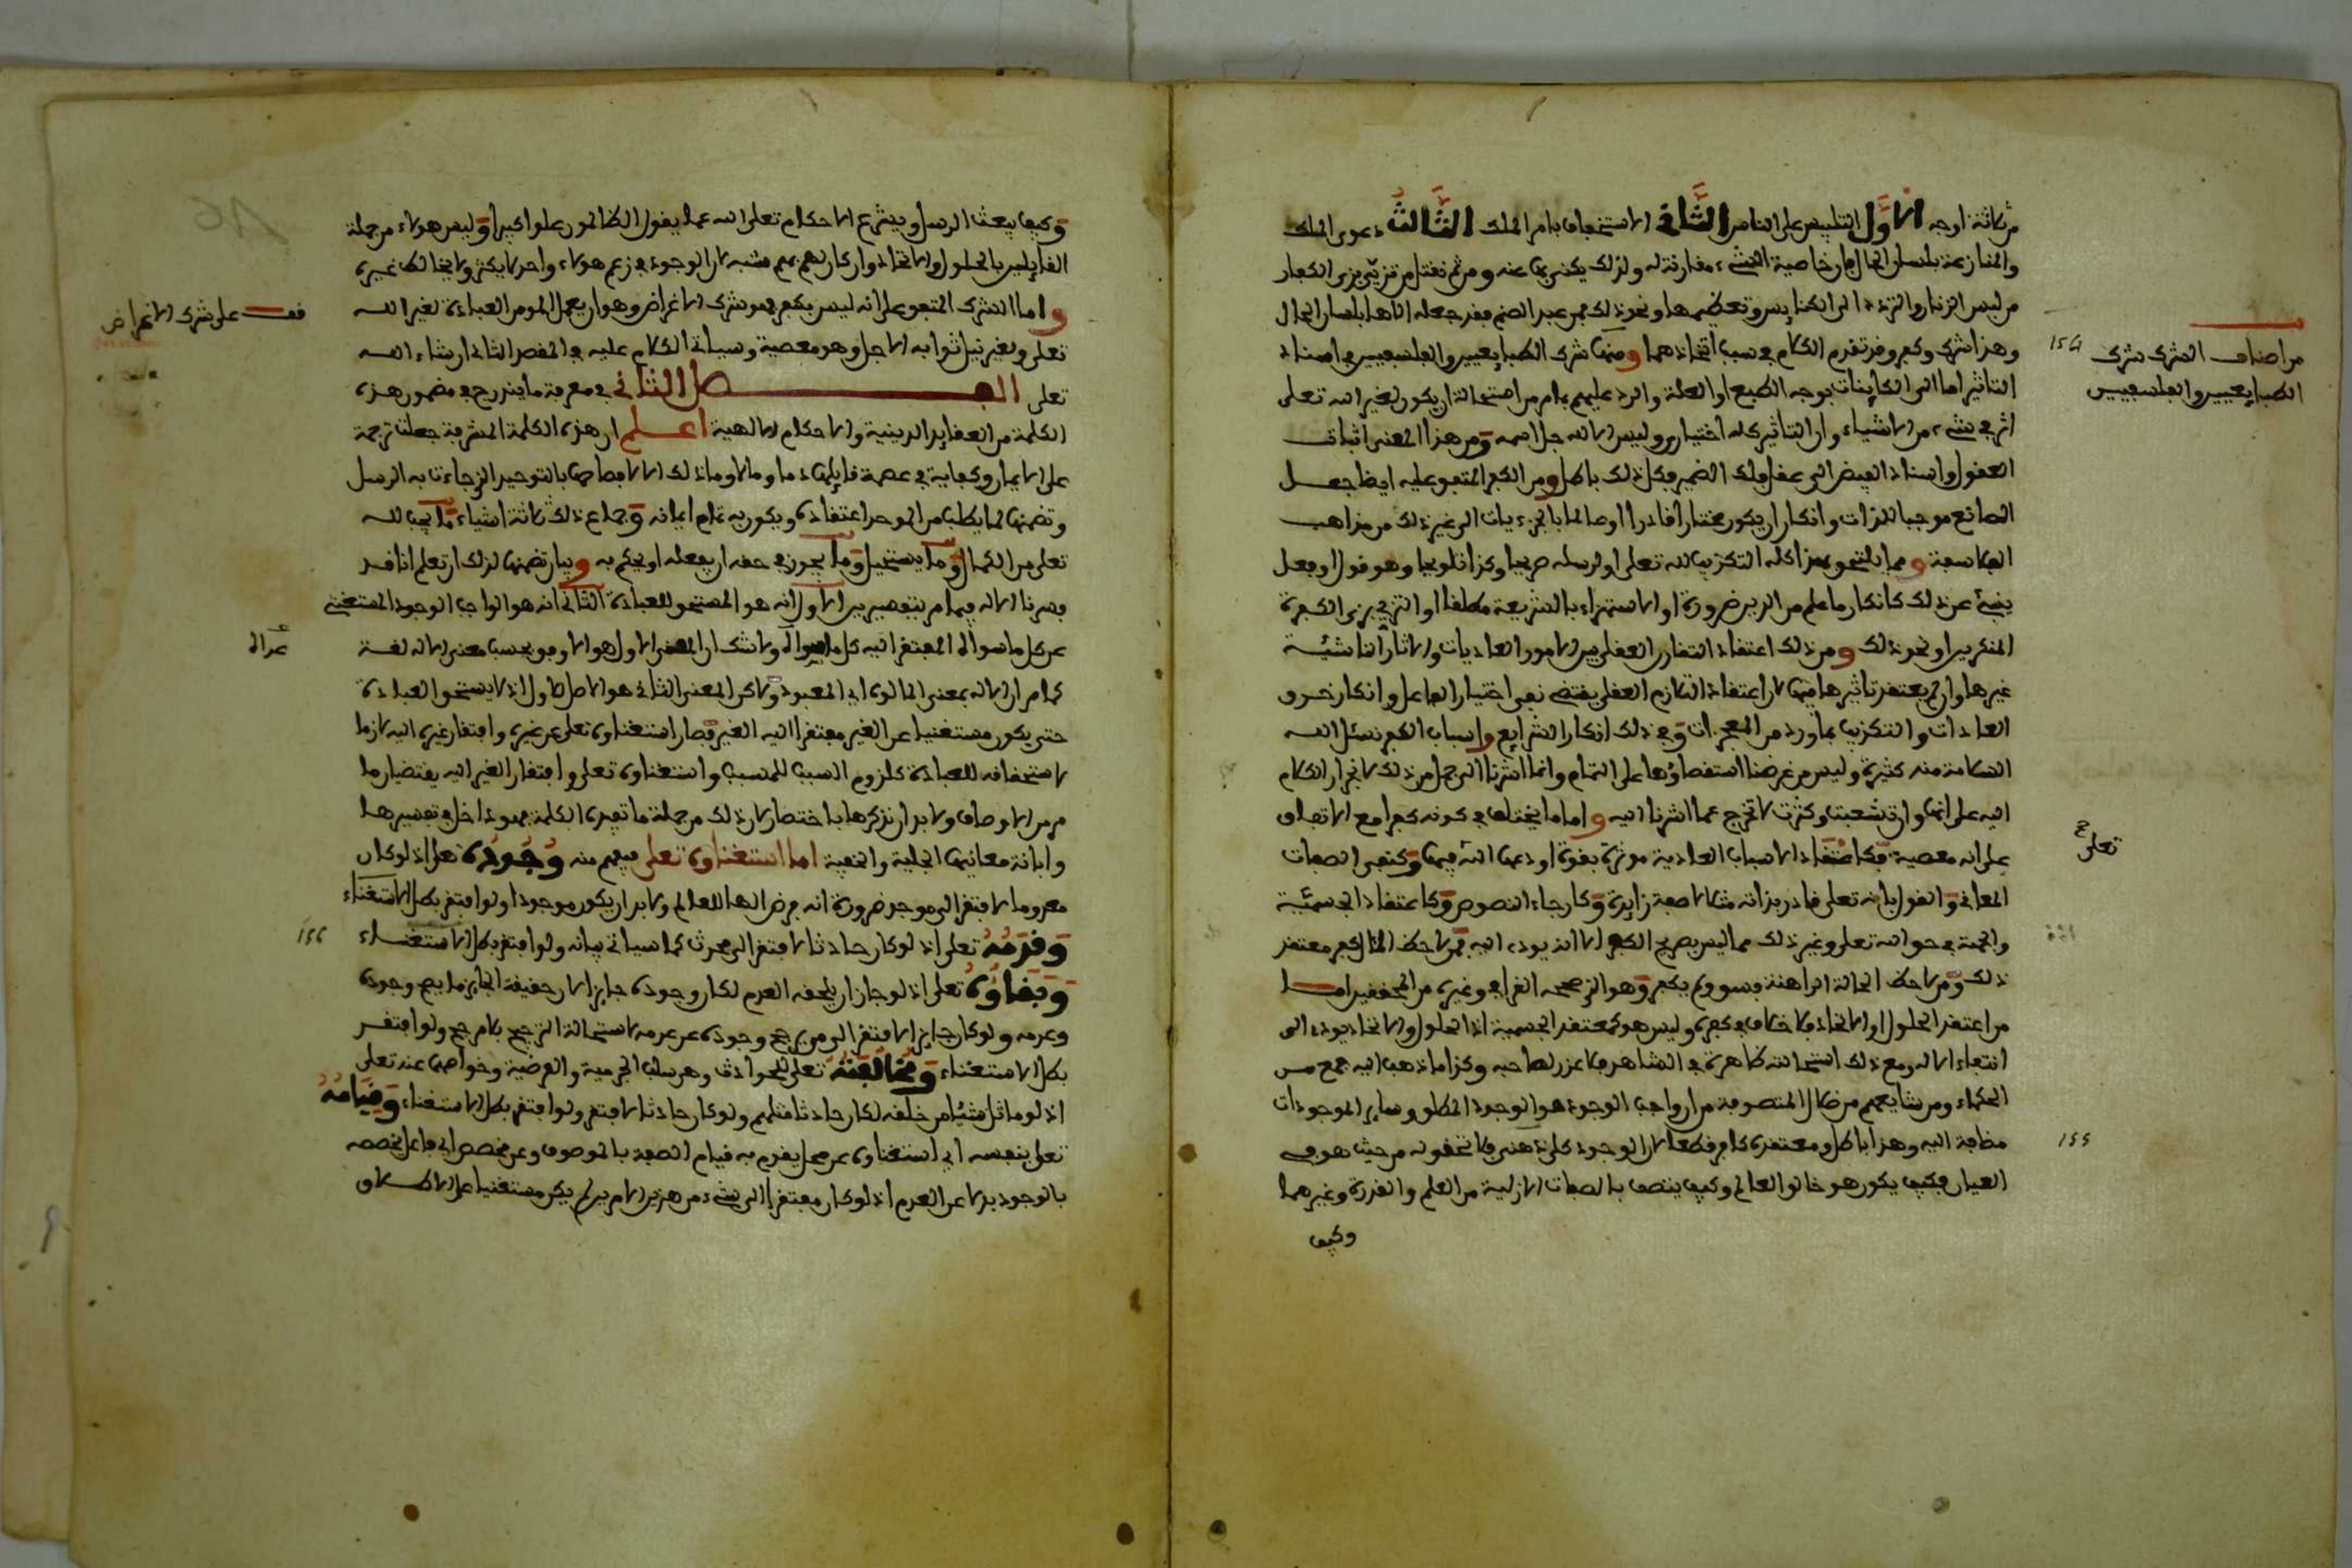 من ثلاثة اوجه الاول التلبيس على الناس الثاني الاستخفاف بامر الملك الثالث دعوى الملك
والمنازعة بلسان الحال لان خاصية الشيء مقارنة له ولذلك يكنى بها عنه ومن ثم نقتل من تزيى بزي الكفار
من لبس الزنار والتردد الى الكنايس وتعظيمها ونحو ذلك فمن عبد الصنم فقد جعله الاها بلسان الحال
وهذا شرك وكفر وقد تقدم الكلام في سبب اتخاذهما ومنها شرك الطبايعيين والفلسفيين في اسناد
التاثير اما الى الكاينات بوجه الطبع او العلة والرد عليهم بما مر من استحالة ان يكون لغير الله تعلى
اثر في شيء من الاشياء وان التاثير كله اختياري وليس الا لله جل اسمه ومن هذا المعنى اثبات
العقول واسناد الفيض الى عقل فلك القمر فكل ذلك باطل ومن الكفر المتفق عليه ايضا جعل
الصانع موجبا بالذات وانكار ان يكون مختارا قادرا او عالما بالجزءيات الى غير ذلك من مذاهب
الفلاسفة ومما يلتحق بهذا كله التكذيب لله تعلى او لرسله صريحا وكذا تلويحا وهو قول او فعل
ينبئ عن ذلك كانكار ما علم من الدين ضرورة او الاستهزاء بالشريعة مطلقا او التزيي بزي الكفرة
المنكرين او نحو ذلك ومن ذلك اعتقاد التقارن العقلي بين الامور العاديات والاثار الناشئة
غيرها وان لم يعتقد تاثيرها فيها لان اعتقاد التلازم العقلي يقتضي نفي اختيار الفاعل وانكار خرق
العادات والتكذيب بما ورد من المعجزات وفي ذلك انكار الشرايع واسباب الكفر نسئل الله
السلامة منه كثيرة وليس من غرضنا استقصاؤها على التمام وانما اشرنا الى جمل من ذلك لانجرار الكلام
اليه على انها وان تشعبت وكثرت لا تخرج عما اشرنا اليه واما ما يختلف في كونه كفرا مع الاتفاق
على انه معصية فكاعتقاد الاسباب العادية موثرة بقوة اودعها الله فيها وكنفي الصفات
المعاني والقول بانه تعلى قادر بذاته مثلا لا بصفة زايدة وكارجاء النصوص وكاعتقاد الجسمية
والجهة في حق الله تعلى وغير ذلك مما ليس بصريح الكفر الا انه يودي اليه فمن لاحظ المئال كفر معتقد
ذلك ومن لاحظ الحالة الراهنة فسق ولم يكفر وهو الذي صححه القرافي وغيره من المحققين اما
من اعتقد الحلول او الاتحاد فلا خلاف في كفره وليس هو كمعتقد الجسمية اذ الحلول والاتحاد يودي الى
انتفاء الاله ومع ذلك استحالته ظاهرة في الشاهد فلا عذر لصاحبه وكذا ما ذهب اليه جمع من
الحكماء ومن شايعهم من ضلال المتصوفة من ان واجب الوجود هو الوجود المطلق وساير الموجودات
مظاهر اليه وهذا باطل ومعتقده كافر قطعا لان الوجود كلي ذهني فلا تحقق له من حيث هو في
العيان فكيف يكون هو خالق العالم وكيف يتصف بالصفات الازلية من العلم والقدرة وغيرهما
وكيف
من اصناف الشرك شرك
الطبايعيين والفلسفيين
154
تعلى صح
155
وكيف يبعث الرسل ويشرع الاحكام تعلى الله عما يقول الظالمون علوا كبيرا وليس هولاء من جملة
القايلين بالحلول والاتحاد وان كان لهم بهم شبه لان الوجود في زعم هولاء واحد لا يكثر ولا يخالط غيره
واما الشرك المتفق على انه ليس بكفر فهو شرك الاغراض وهو ان يعمل المومن العبادة لغير الله
تعلى ولغير نيل ثوابه الاجل وهو معصية وسياتي الكلام عليه في المقصد الثاني ان شاء الله
تعلى الفصل الثاني في معرفة ما يندرج في مضمون هذه
الكلمة من العقايد الدينية والاحكام الالهية اعلم ان هذه الكلمة المشرفة جعلت ترجمة
على الايمان وكفاية في عصمة قايلها دما ومالا وما ذلك الا لافصاحها بالتوحيد الذي جاءت به الرسل
وتضمنها لما يطلب من الموحد اعتقاده ويكون به تمام ايمانه وجماع ذلك ثلاثة اشياء ما يجب لله
تعلى من الكمال وما يستحيل وما يجوز في حقه ان يفعله او يحكم به وبيان تضمنها لذلك ان تعلم انا قد
فسرنا الاله فيما مر بتفسيرين الاول انه هو المستحق للعبادة الثاني انه هو الواجب الوجود المستغني
عن كل ما سواه المفتقر اليه كل ما سواه ولا شك ان المعنى الاول هو الاوفق بحسب معنى الاله لغة
كما مر ان الاله بمعنى المالوه اي المعبود ولاكن المعنى الثاني هو الاصل للاول اذ لا يستحق العبادة
حتى يكون مستغنيا عن الغير مفتقرا اليه الغير فصار استغناوه تعلى عن غيره وافتقار غيره اليه لازما
لاستحقاقه للعبادة كلزوم السبب للمسبب واستغناوه تعلى وافتقار الغير اليه يقتضيان ما
مر من الاوصاف ولا بد ان نذكرها باختصار لان ذلك من جملة ما تفيده الكلمة فهو داخل في تفسيرها
وابانة معانيها الجلية والخفية اما استغناوه تعلى فيفهم منه وجوده تعلى اذ لو كان
معدوما لافتقر الى موجد ضرورة انه فرض الها للعالم ولا بد ان يكون موجودا ولو افتقر بطل الاستغناء
وقدمه تعلى اذ لو كان حادثا لافتقر الى محدث كما سياتي بيانه ولو افتقر بطل الاستغناء
وبقاوه تعلى اذ لو جاز ان يلحقه العدم لكان وجوده جايزا لان حقيقة الجايز ما يصح وجوده
وعدمه ولو كان جايزا لافتقر الى من يرجح وجوده عن عدمه لاستحالة الترجيح بلا مرجح ولو افتقر
بطل الاستغناء ومخالفته تعلى للحوادث وهو سلب الجرمية والعرضية وخواصها عنه تعلى
اذ لو ماثل شيئا من خلقه لكان حادثا مثلهم ولو كان حادثا لافتقر ولو افتقر بطل الاستغناء وقيامه
تعلى بنفسه اي استغناوه عن محل يقوم به قيام الصفة بالموصوف وعن مخصص اي فاعل يخصصه
بالوجود بدلا عن العدم اذ لو كان مفتقرا الى شيء من هذين الامرين لم يكن مستغنيا على الاطلاق
قف على شرك الاغراض
عداه
156
16